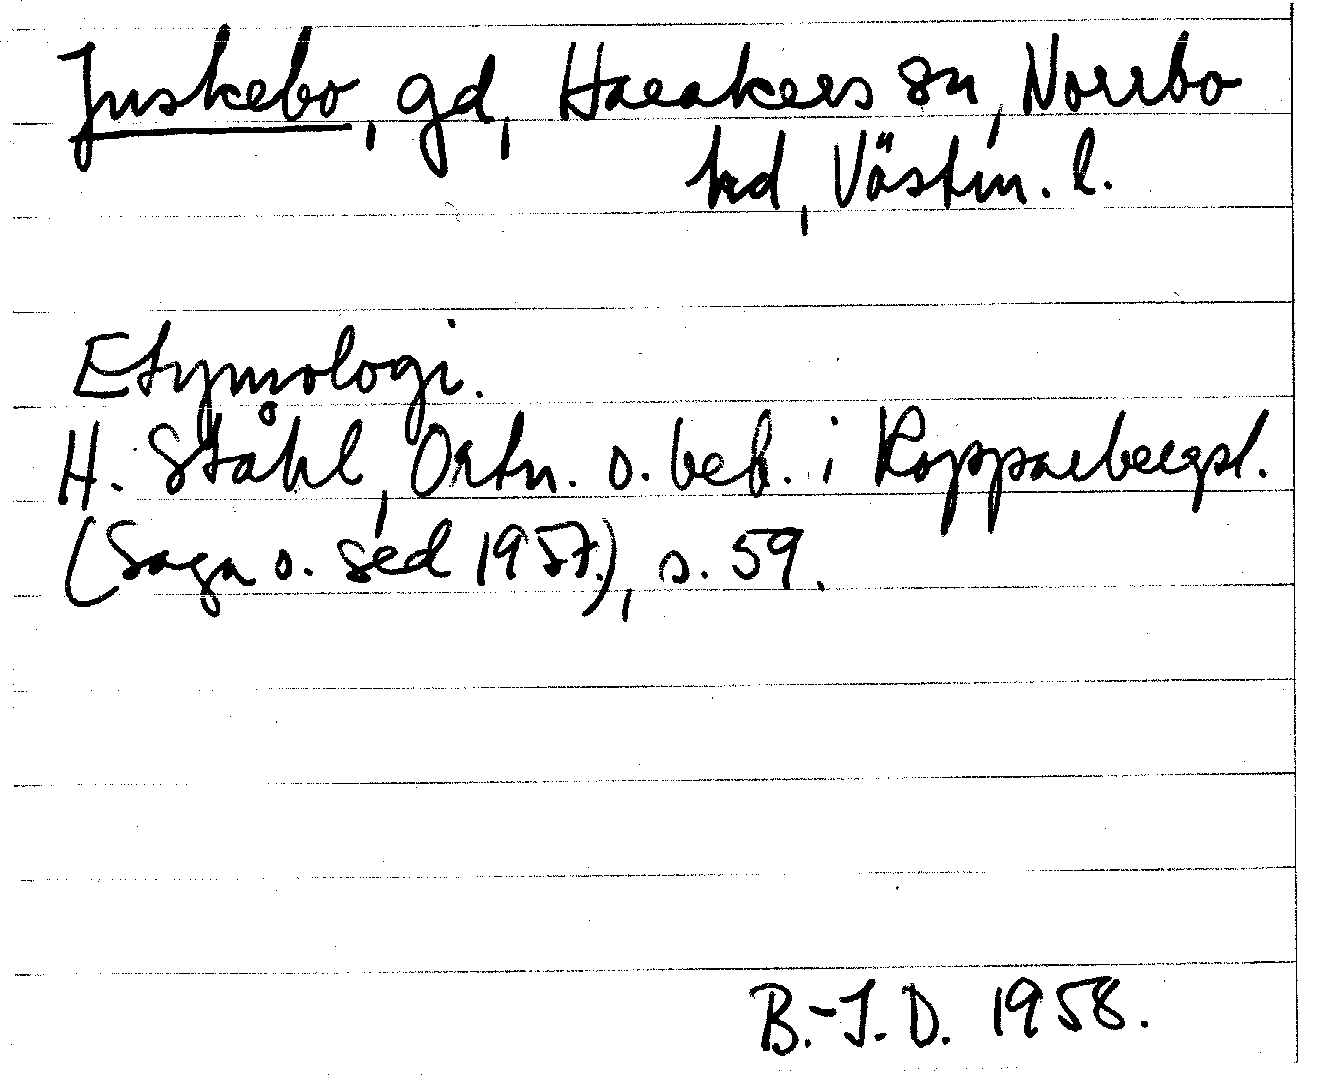 Juskebo, gd, Harakers sn, Norrbo
hd, Västm. l.
Etymologi.
H. Ståhl, Ortn. o. beb. i Kopparbergsl.
(Saga o. sed 1957.), s. 59.
B.-J. D. 1958.